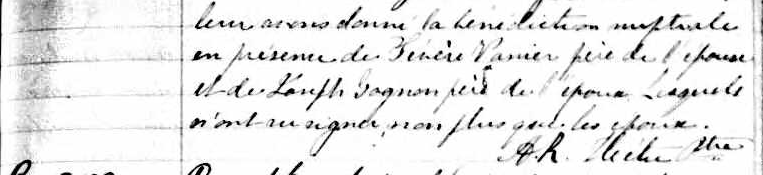 leur avons donné la bénédiction nuptiale
en présence de Sévère Vanier père de l'épouse
et de Joseph Gagnon père de l'époux Lesquels
n'ont su signer, non plus que les époux.
A. R. Ptre